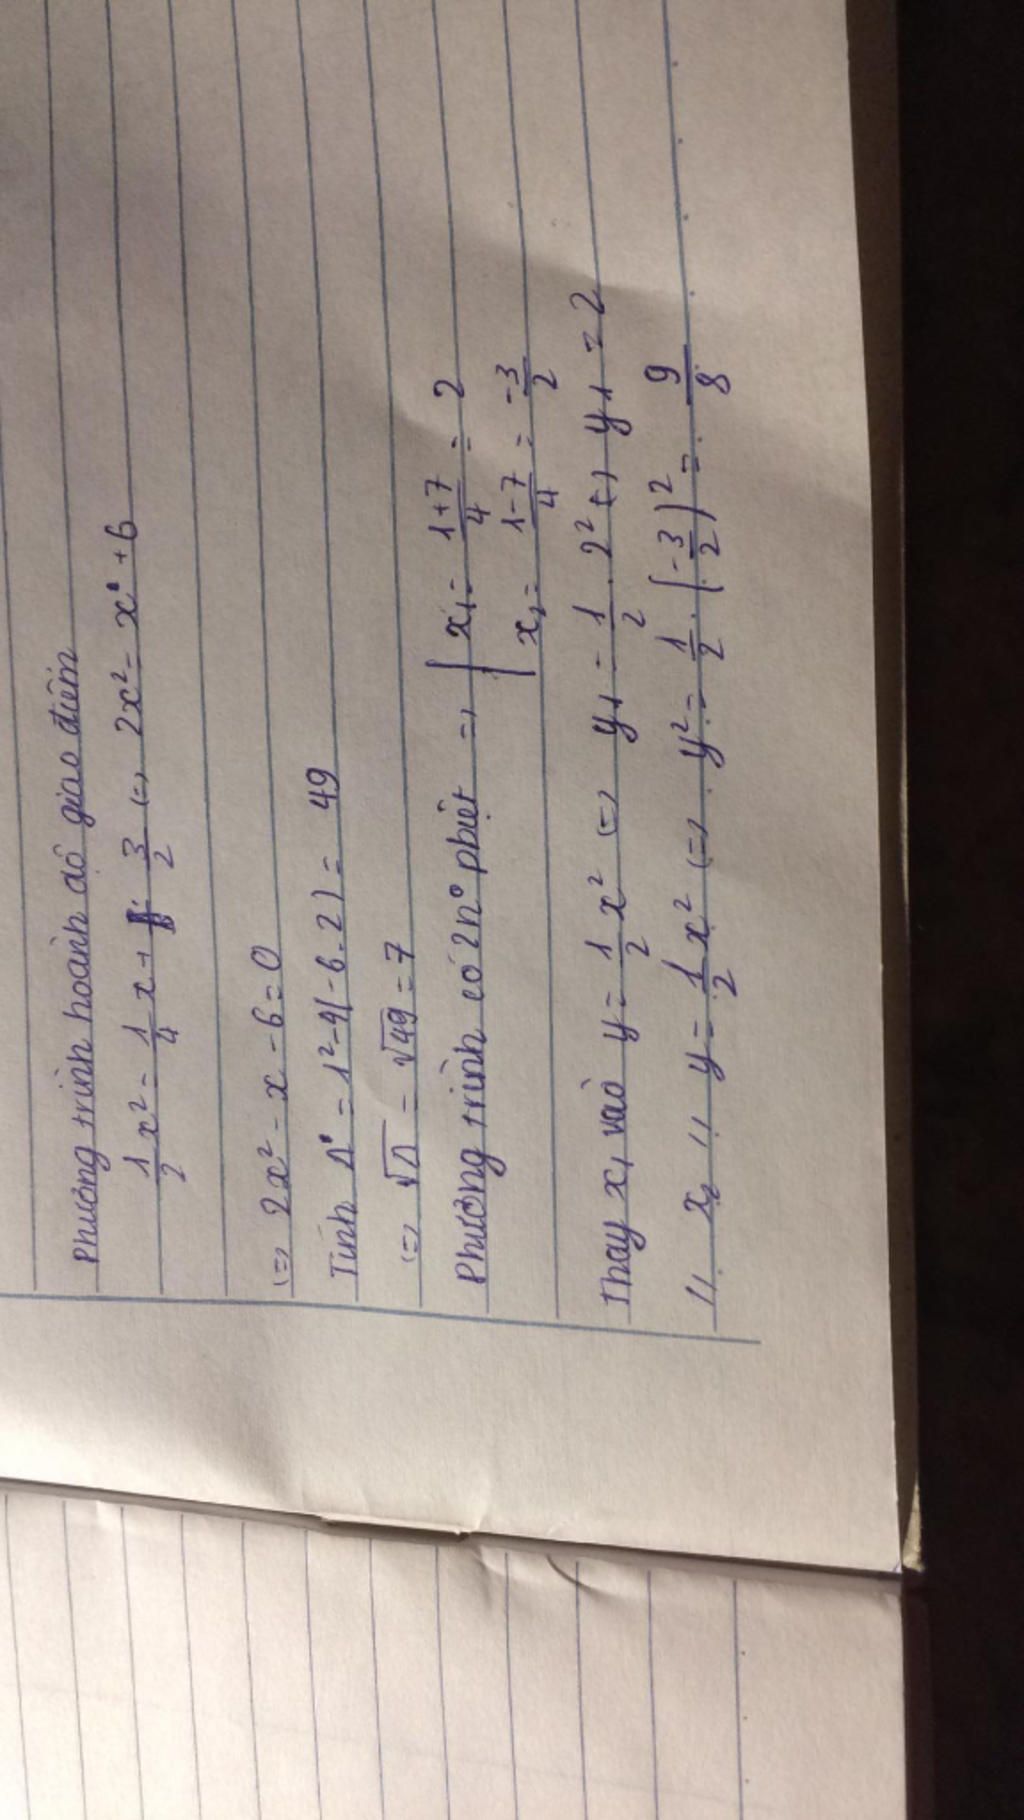 Phương trình hoành độ giao điểm
1/2 x² = 1/4 x + 3/2 (=) 2x² = x + 6
(=) 2x² - x - 6 = 0
Tính Δ = 1² - 4(-6.2) = 49
(=) √Δ = √49 = 7
Phương trình có 2 n° pbiệt => [ x₁ = 1+7/4 = 2
x₂ = 1-7/4 = -3/2
Thay x₁ vào y = 1/2 x² (=) y₁ = 1/2 . 2² (=) y₁ = 2
" x₂ " y = 1/2 x² (=) y² = 1/2 . (-3/2)² = 9/8